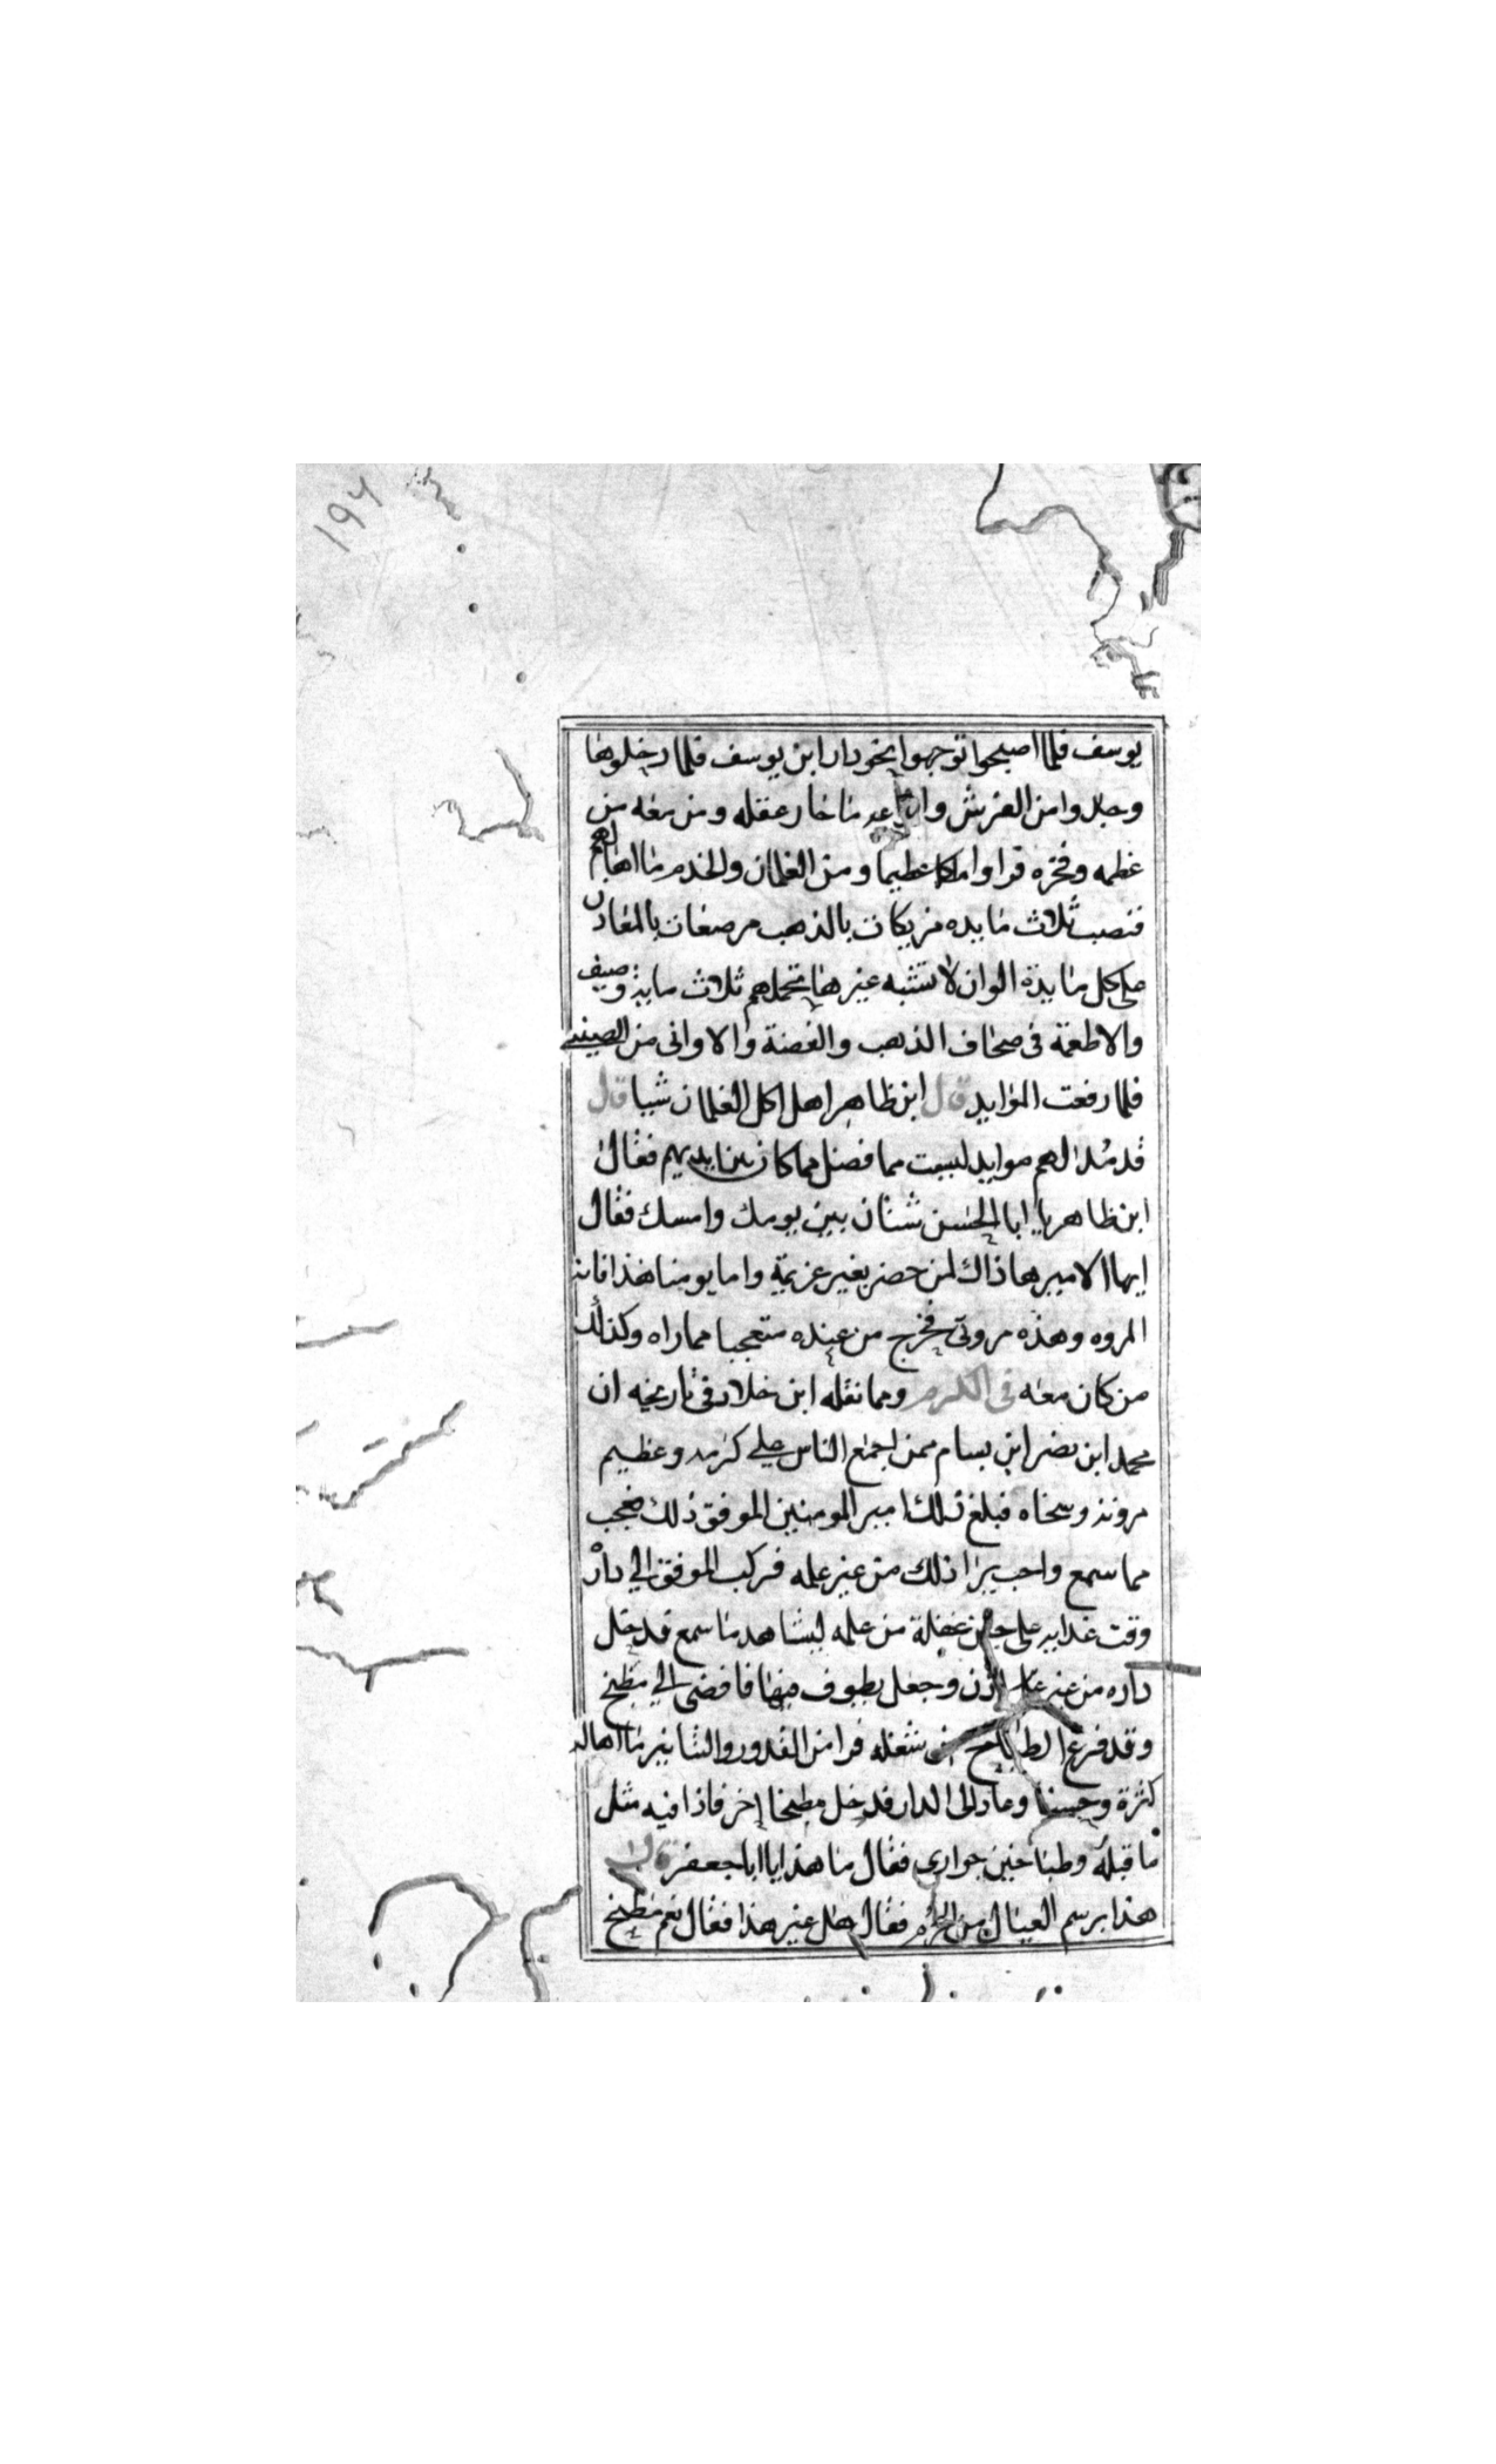 ١٩٦
يوسف فلما اصبحوا توجهوا نحو دار ابن يوسف فلما دخلوها
وجدوا من الفرش و ما حار عقله ومن معه من
عظمه وفخره فراوا ملكا عظيما ومن الغلمان والخدم ما اهالهم
فنصب ثلاث مايده مزيكات بالذهب مرصعات بالمعادن
على كل مايدة الوان لا تشبه غيرها تحملهم ثلاث مايه وصيف
والاطعمة فى صحاف الذهب والفضة والاوانى من الصينى
فلما رفعت الموايد قال ابن ظاهر اهل اكل الغلمان شيا قال
قد مدا لهم موايد ليست مما فضل مما كان بين ايديهم فقال
ابن ظاهر يا ابا الحسن شتان بين يومك وامسك فقال
ايها الامير هاذاك لمن حضر بغير عزيمة واما يومنا هذا فانه
المروه وهذه مروتى فخرج من عنده متعجبا مما راه وكذلك
من كان معه فى الكرم ومما نقله ابن خلاد فى تاريخه ان
محمد ابن نضر ابن بسام ممن اجمع الناس على كرمه وعظيم
مروته وسخاه فبلغ ذلك امير المومنين الموفق ذلك فعجب
مما سمع واحب يرا ذلك من غير علمه فركب الموفق الى دار
وقت غدايه على حين غفلة من علمه ليشاهد ما سمع فدخل
داره من غير اذن وجعل يطوف فيها فافضى الى مطبخ
وقد فرغ الطباخ من شغله فرا من القدور والتنانير ما اهاله
كثرة وحسنا وعاد الى الدار فدخل مطبخا اخر فاذا فيه مثل
ما قبله وطباخين جوارى فقال ما هذا يا ابا جعفر قال
هذا برسم العيال من الحرم فقال هل غير هذا فقال نعم مطبخ